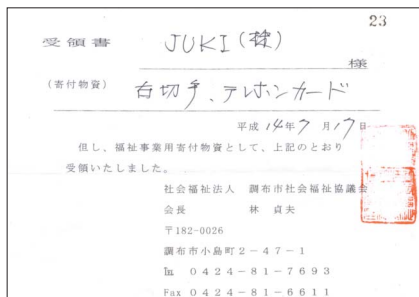 23
受領書 JUKI(株)
様
(寄付物資) 古切手、テレホンカード
平成14年7月17日
但し、福祉事業用寄付物資として、上記のとおり
受領いたしました。
社会福祉法人 調布市社会福祉協議会
会長 林 貞夫
〒182-0026
調布市小島町2-47-1
℡ 0424-81-7693
Fax 0424-81-6611